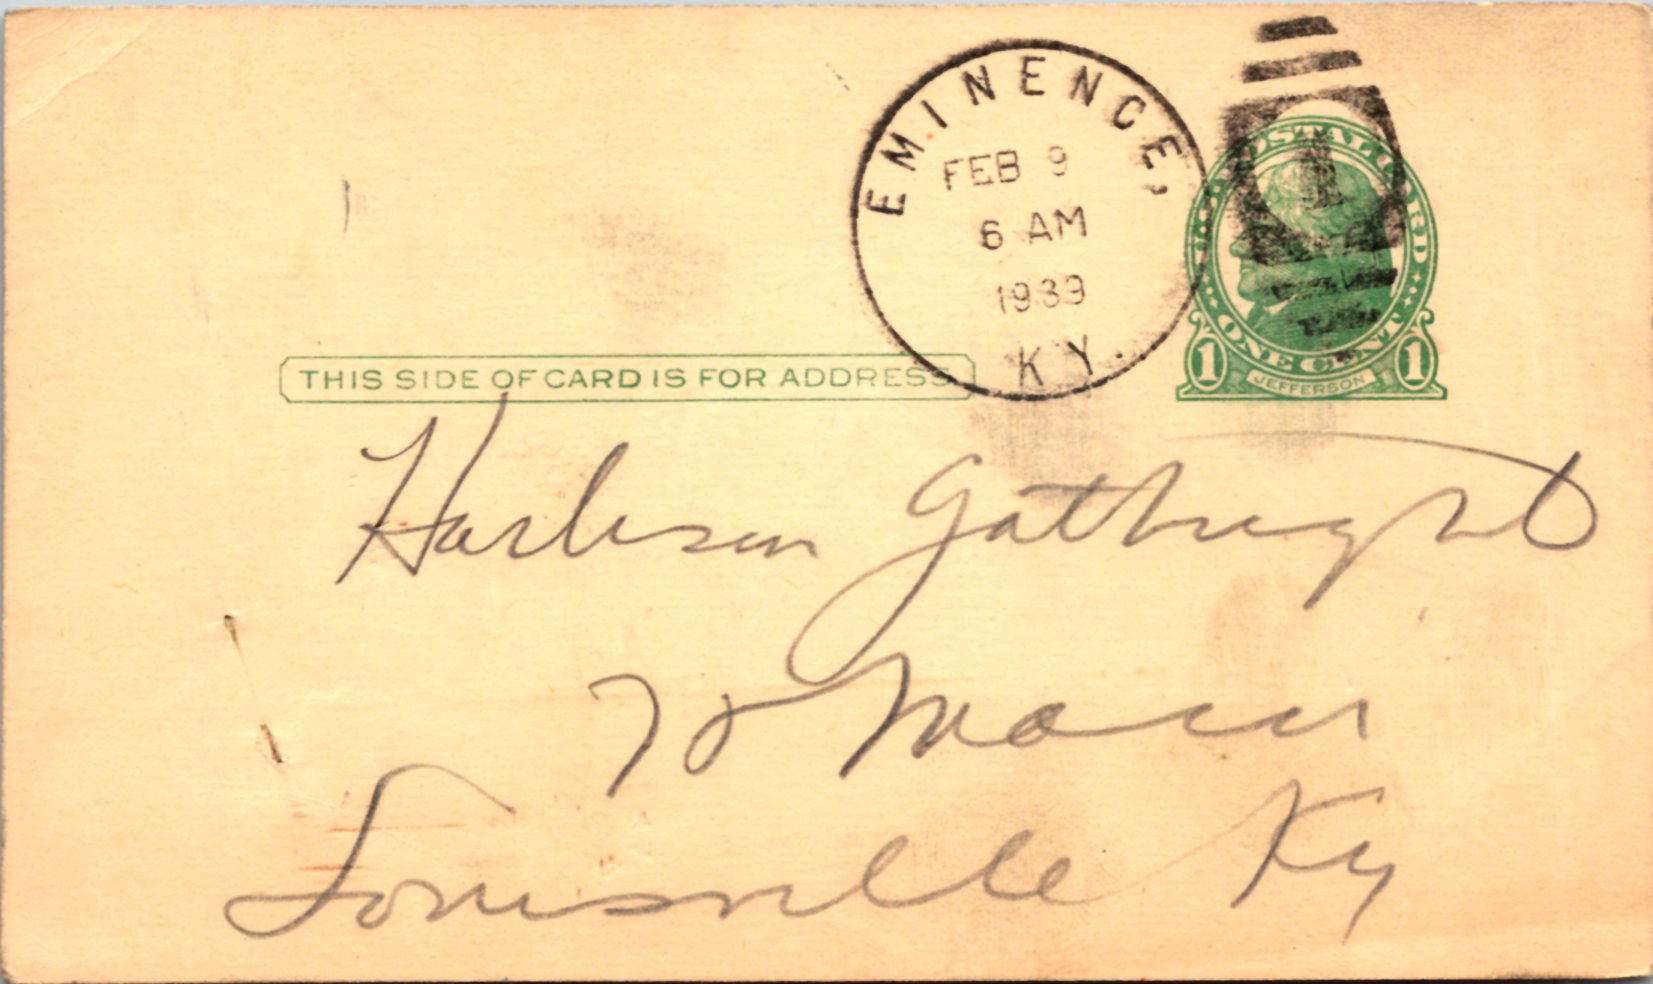 EMINENCE,
FEB 9
6 AM
1939
KY.
U.S. POSTAL CARD
1 ONE CENT 1
JEFFERSON
THIS SIDE OF CARD IS FOR ADDRESS
Harbison Gathright
70
Louisville Ky